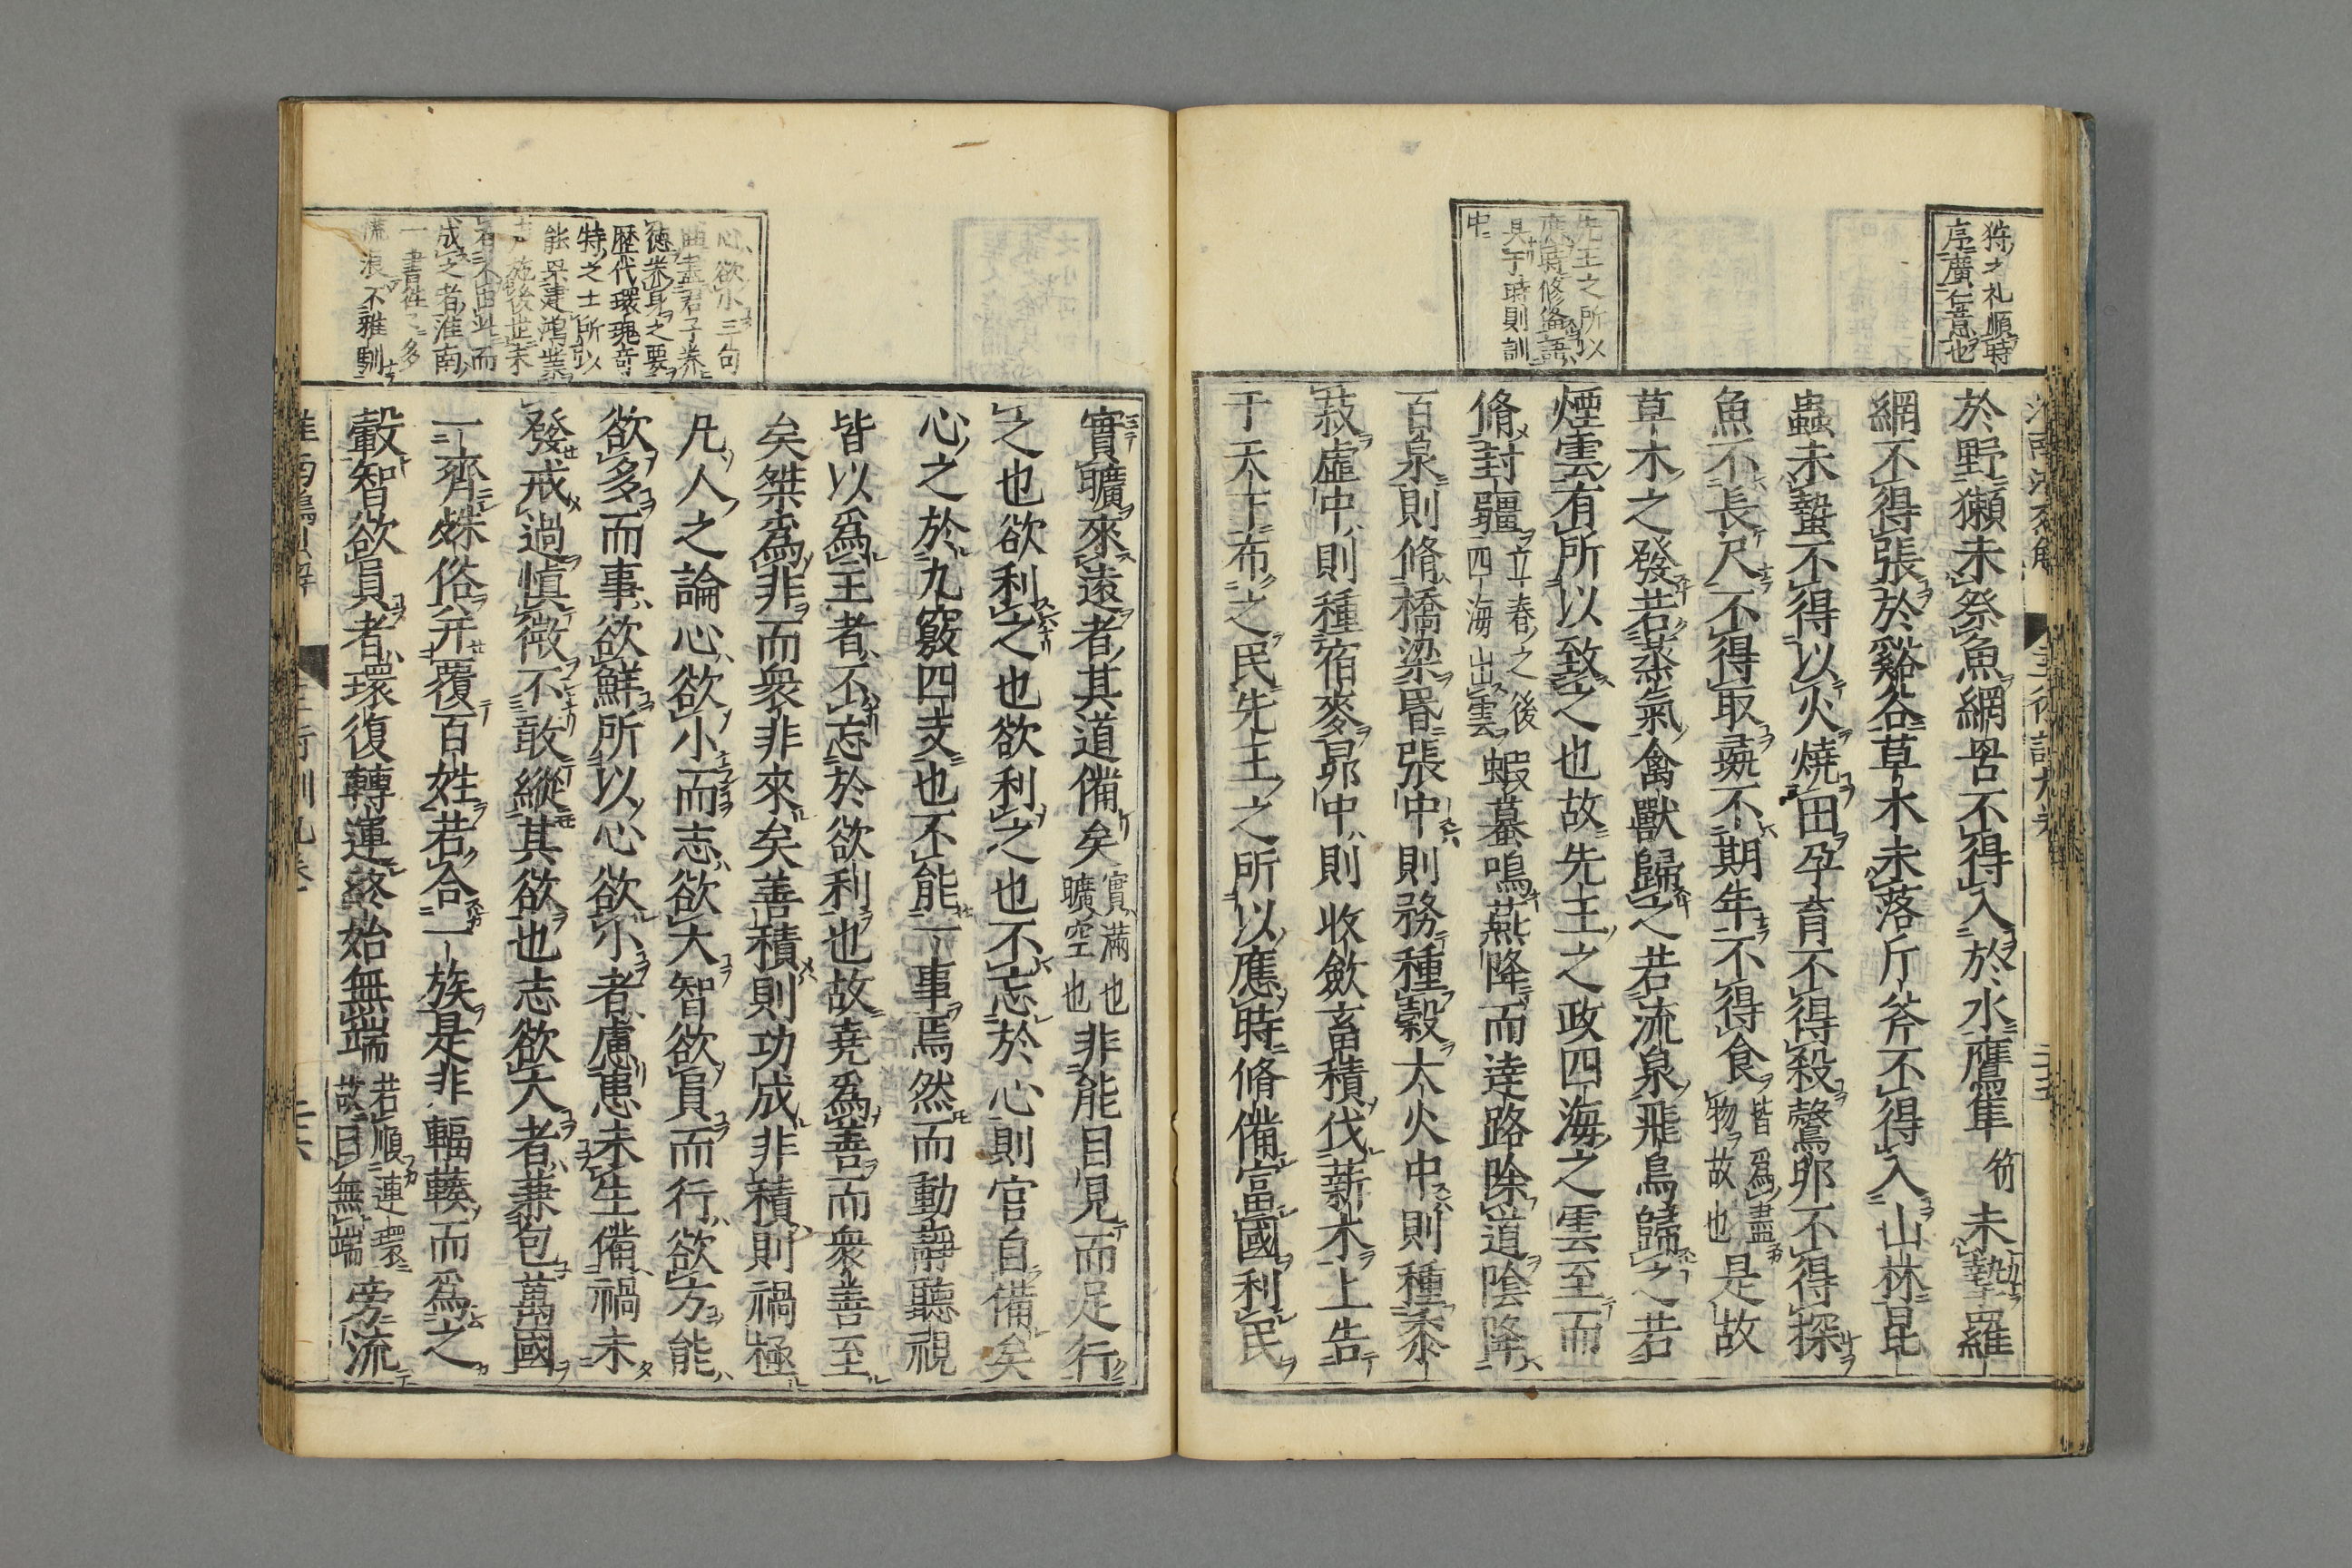 狩之礼順時
序廣仁意也
先王之所以
應時修備語
具于時則訓
中
於野獺未祭魚網罟不得入於水鷹隼未摯羅
網不得張於谿谷草木未落斤斧不得入山林昆
蟲未蟄不得以火燒田孕育不得殺鷇卵不得探
魚不長尺不得取彘不期年不得食皆爲盡物故也是故
草木之發若蒸氣禽獸歸之若流泉飛鳥歸之若
煙雲有所以致之也故先王之政四海之雲至而
脩封疆立春之後四海出雲蝦蟇鳴燕降而逹路除道陰降
百泉則脩橋梁昬張中則務種穀大火中則種黍
菽虛中則種宿麥昴中則收斂畜積伐薪木上告
于天下布之民先王之所以應時脩備富國利民
心欲小三句
曲盡君子養
徳養身之要
歴代環瑰竒
特之士所以
能早建鴻業
施後世未
有不由此而
成之者淮南
一書徃〻多
流浪不雅馴
實曠來遠者其道備矣實滿也曠空也非能目見而足行
之也欲利之也欲利之也不忘於心則官自備矣
心之於九竅四支也不能一事焉然而動靜聽視
皆以爲主者不忘於欲利也故堯爲善而衆善至
矣桀爲非而衆非來矣善積則功成非積則禍極
凡人之論心欲小而志欲大智欲員而行欲方能
欲多而事欲鮮所以心欲小者慮患未生備禍未
發戒過慎微不敢縱其欲也志欲大者兼包萬國
一齊殊俗幷覆百姓若合一族是非輻輳而爲之
轂智欲員者環復轉運終始無端若順連環故曰無端旁流